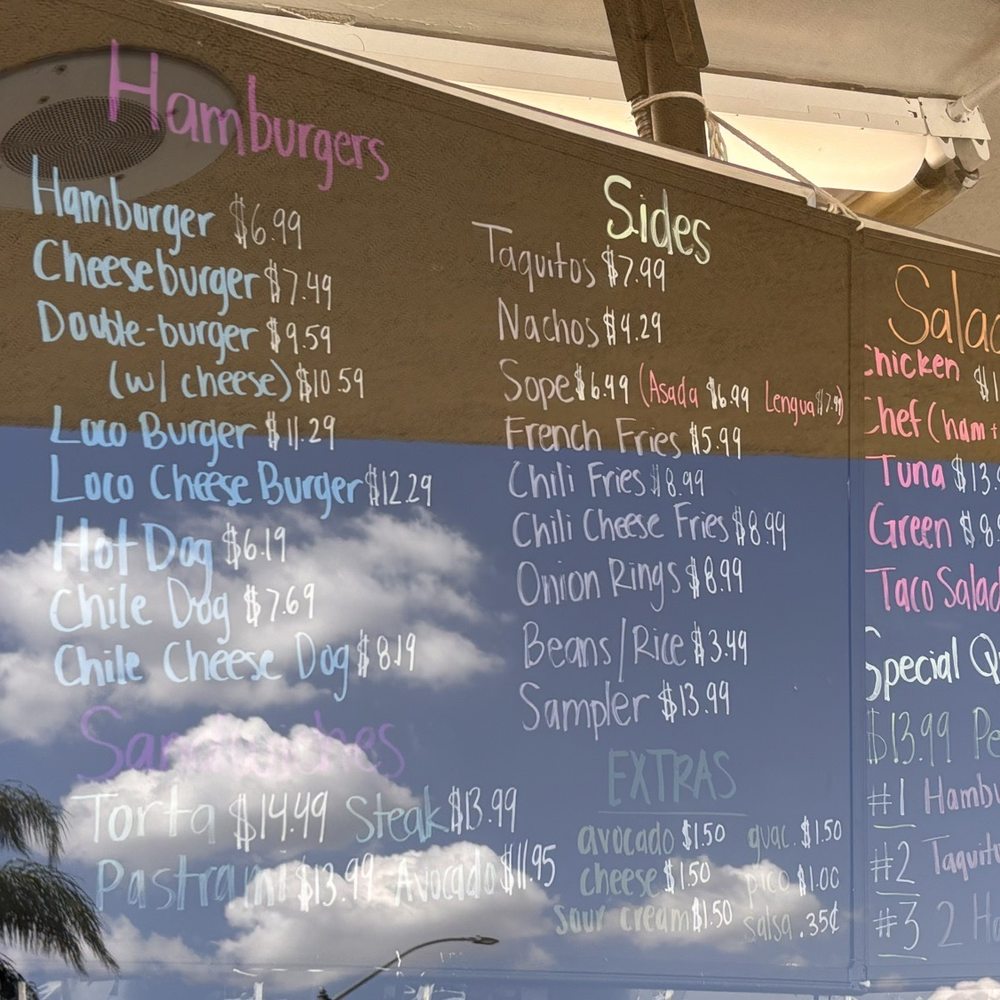 Hamburgers
Hamburger $6.99
Cheeseburger $7.49
Double-burger $9.59
(w/ cheese) $10.59
Loco Burger $11.29
Loco Cheese Burger $12.29
Hot Dog $6.19
Chile Dog $7.69
Chile Cheese Dog $8.19
Sandwiches
Torta $14.49 Steak $13.99
Pastrami $13.99 Avocado $11.95
Sides
Taquitos $7.99
Nachos $9.29
Sope $6.49 (Asada $6.99 Lengua $7.99)
French Fries $5.99
Chili Fries $8.99
Chili Cheese Fries $8.99
Onion Rings $8.99
Beans/Rice $3.49
Sampler $13.99
EXTRAS
avocado $1.50 guac. $1.50
cheese $1.50 pico $1.00
sour cream $1.50 salsa .35¢
Salad
Chicken $1
Chef (ham +
Tuna $13.9
Green $8.
Taco Salad
Special Qu
$13.99 Pe
#1 Hambu
#2 Taquit
#3 2 Ha